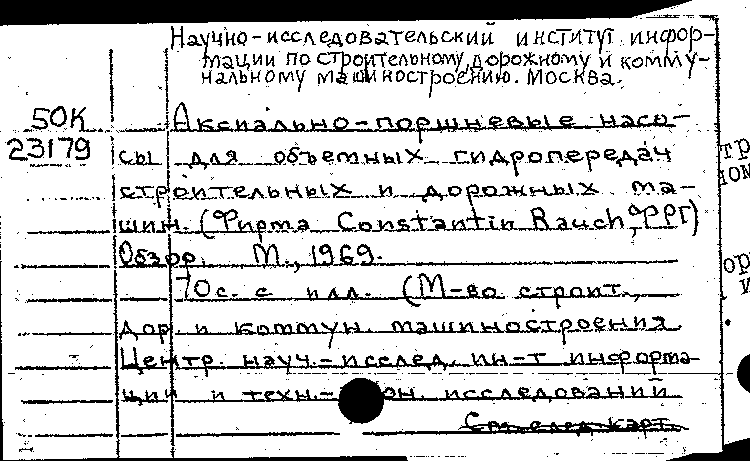 Научно-исследовательский институт инфор-
мации по строительному, дорожному и комму-
нальному машиностроению. Москва.
50К
23179
Аксиально-поршневые насо-
сы для объемных гидропередач
строительных и дорожных ма-
шин. (Фирма Constantin Rauch, ФРГ)
Обзор. М., 1969.
70с. с илл. (М-во строит.,
дор. и коммун. машиностроения.
Центр. науч.-исслед. ин-т информа-
ции и техн.- исследований
См. след. карт.